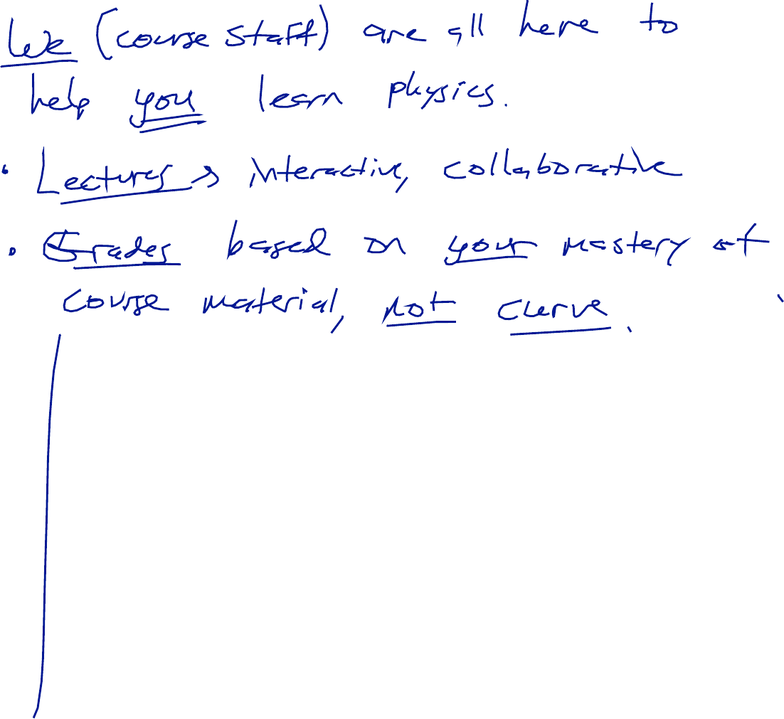 We (course staff) are all here to
help you learn physics.
• Lectures → interactive, collaborative
• Grades based on your mastery of
course material, not curve.